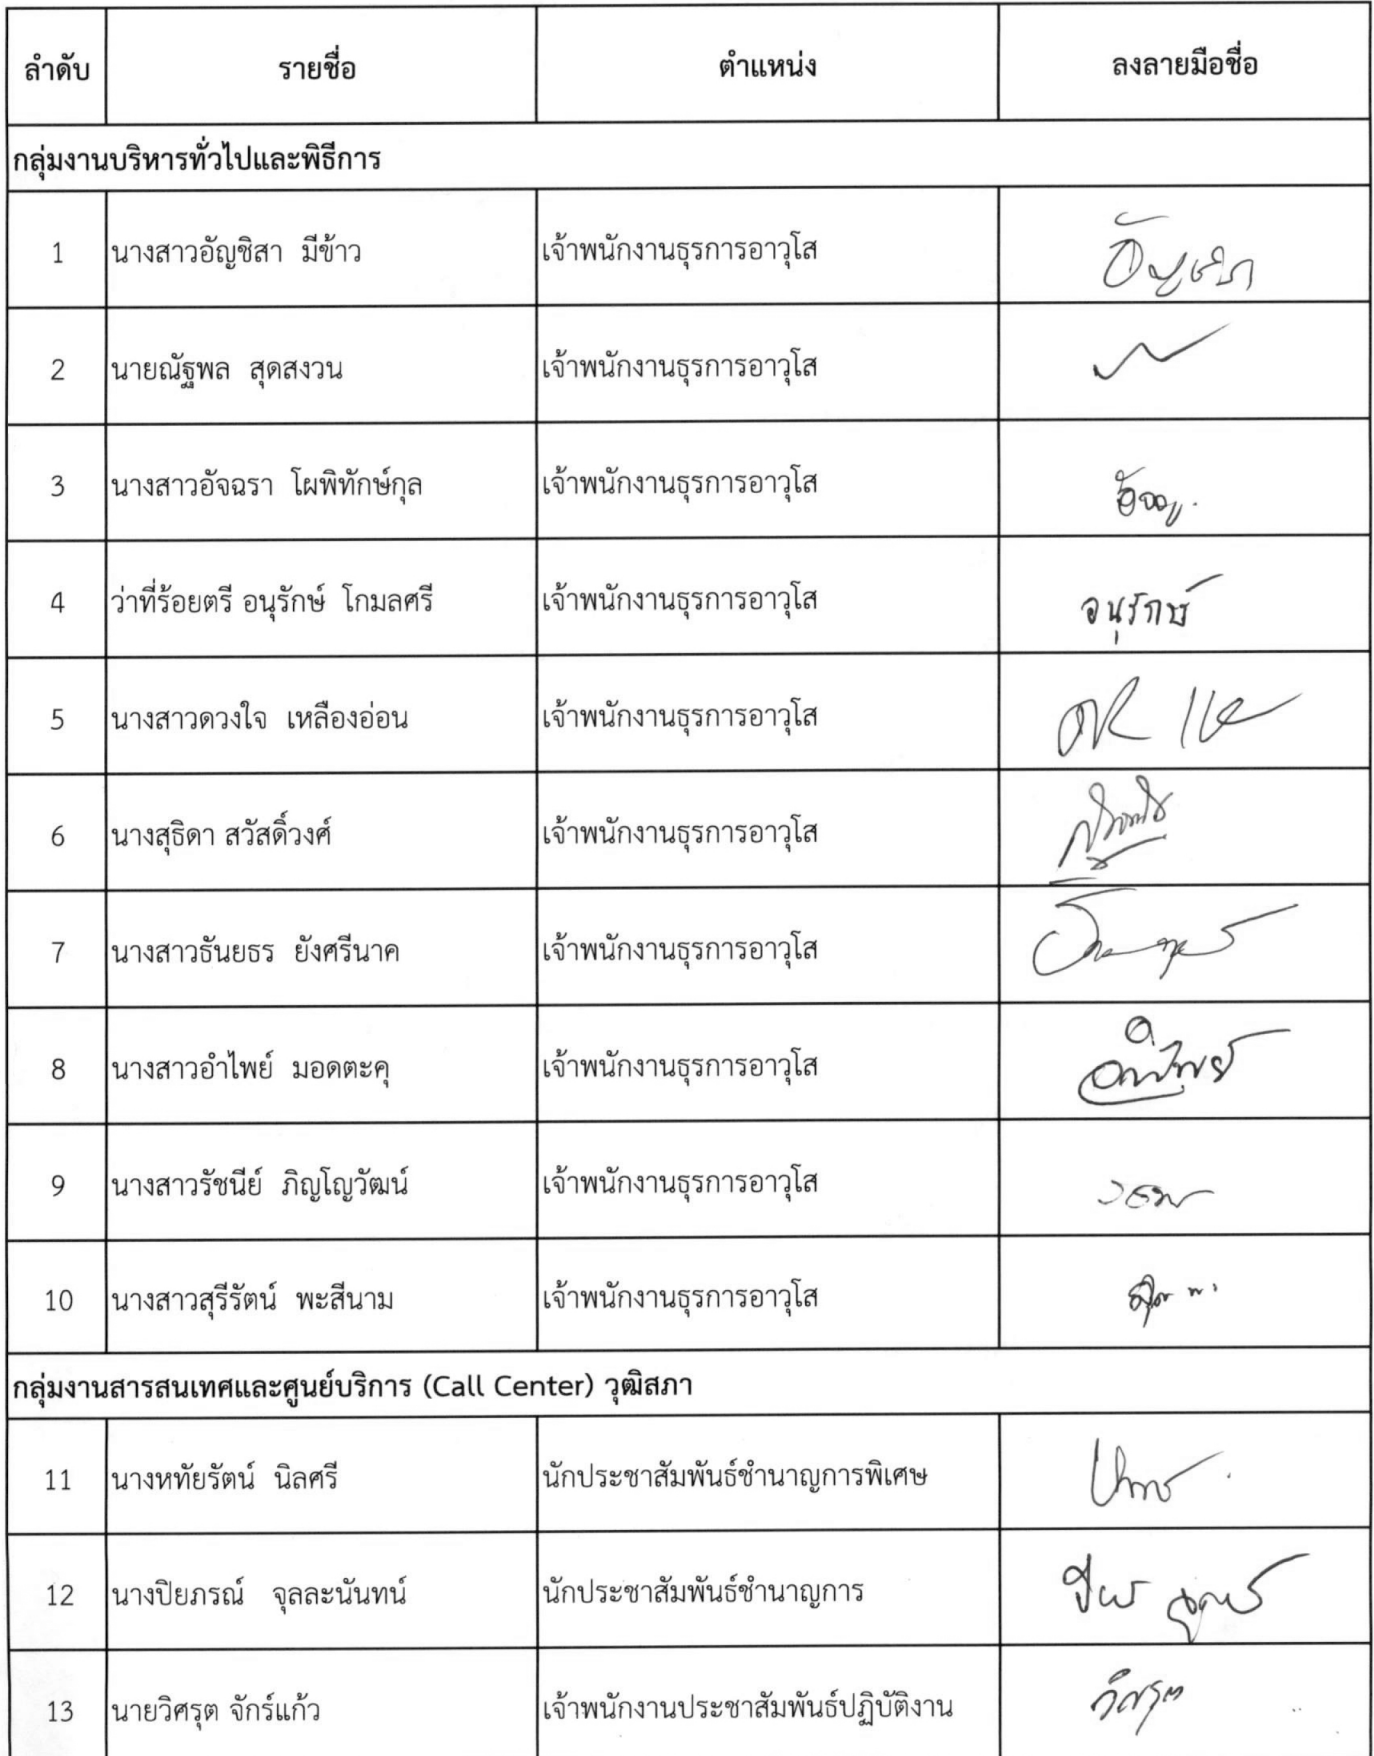 ลำดับ รายชื่อ ตำแหน่ง ลงลายมือชื่อ
กลุ่มงานบริหารทั่วไปและพิธีการ
1 นางสาวอัญชิสา มีข้าว เจ้าพนักงานธุรการอาวุโส
2 นายณัฐพล สุดสงวน เจ้าพนักงานธุรการอาวุโส
3 นางสาวอัจฉรา โผพิทักษ์กุล เจ้าพนักงานธุรการอาวุโส
4 ว่าที่ร้อยตรี อนุรักษ์ โกมลศรี เจ้าพนักงานธุรการอาวุโส อนุรักษ์
5 นางสาวดวงใจ เหลืองอ่อน เจ้าพนักงานธุรการอาวุโส
6 นางสุธิดา สวัสดิ์วงศ์ เจ้าพนักงานธุรการอาวุโส
7 นางสาวธันยธร ยังศรีนาค เจ้าพนักงานธุรการอาวุโส
8 นางสาวอำไพย์ มอดตะคุ เจ้าพนักงานธุรการอาวุโส อำไพย์
9 นางสาวรัชนีย์ ภิญโญวัฒน์ เจ้าพนักงานธุรการอาวุโส
10 นางสาวสุรีรัตน์ พะสีนาม เจ้าพนักงานธุรการอาวุโส
กลุ่มงานสารสนเทศและศูนย์บริการ (Call Center) วุฒิสภา
11 นางหทัยรัตน์ นิลศรี นักประชาสัมพันธ์ชำนาญการพิเศษ
12 นางปิยภรณ์ จุลละนันทน์ นักประชาสัมพันธ์ชำนาญการ
13 นายวิศรุต จักร์แก้ว เจ้าพนักงานประชาสัมพันธ์ปฏิบัติงาน วิศรุต